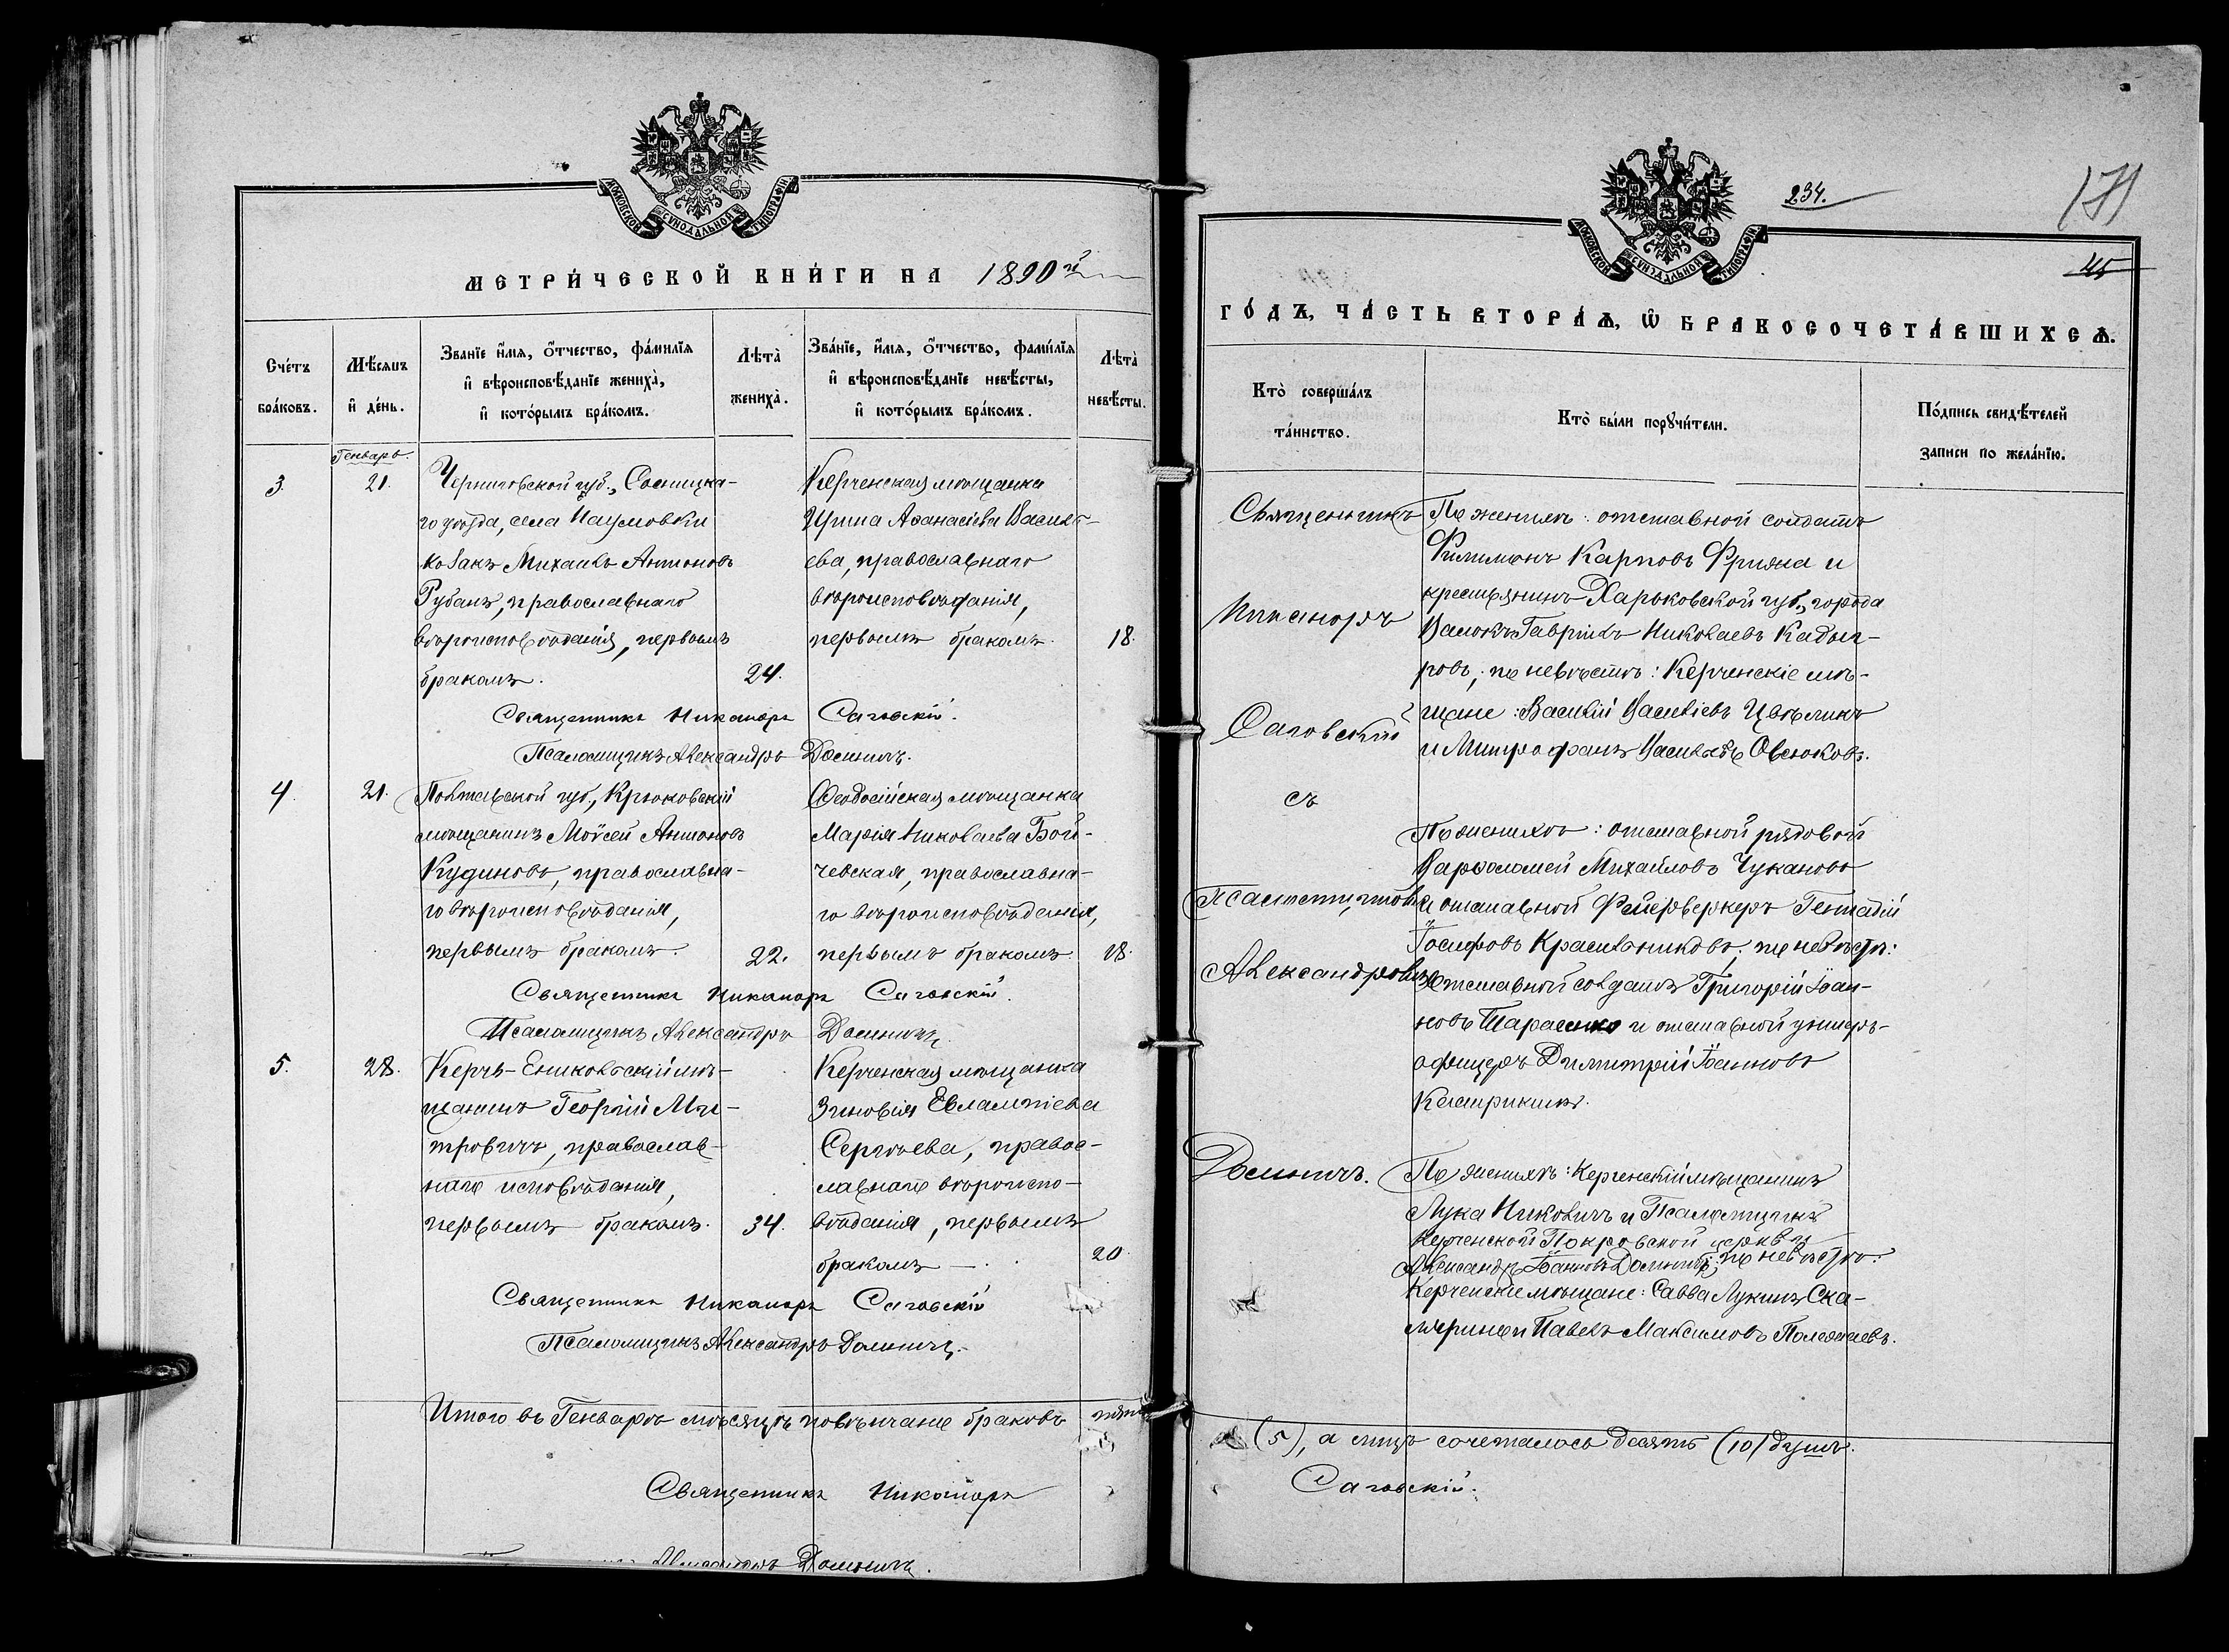 МОСКОВСКОЙ СУНОДАЛЬНОЙ ТИПОГРАФІИ
МЕТРИ́ЧЕСКОЙ КНИ́ГИ НА 1890 й
Сче́тъ бра́ковъ.
Мѣ́сяцъ и де́нь.
Зва́нїе и́мя, о́тчество, фами́лїя
и вѣроисповѣ́данїе жениха̀,
и кото́рымъ бра́комъ.
Лѣта̀ жениха̀.
Зва́нїе, и́мя, о́тчество, фами́лїя
и вѣроисповѣ́данїе невѣ́сты,
и кото́рымъ бра́комъ.
Лѣта̀ невѣ́сты.
Генварь.
3.
21.
Черниговской губ., Сосницка-
го уѣзда, села Наумовки
козакъ Михаилъ Антоновъ
Рубанъ, православнаго
вѣроисповѣданія, первымъ
бракомъ.
24.
Керченская мѣщанка
Ирина Аѳанасіева Василь-
ева, православнаго
вѣроисповѣданія,
первымъ бракомъ.
18.
Священникъ Никаноръ Саговскій.
Псаломщикъ Александръ Долиничъ.
4.
21.
Полтавской губ., Крюковскій
мѣщанинъ Моѵсей Антоновъ
Кудиновъ, православна-
го вѣроисповѣданія,
первымъ бракомъ.
22.
Ѳеодосійская мѣщанка
Марія Николаева Бой-
чевская, православна-
го вѣроисповѣданія,
первымъ бракомъ
18.
Священникъ Никаноръ Саговскій.
Псаломщикъ Александръ Долиничъ.
5.
28.
Керчь-Еникольскій мѣ-
щанинъ Георгій Ми-
тровичъ, православ-
наго исповѣданія,
первымъ бракомъ.
34.
Керченская мѣщанка
Зиновія Евлампіева
Сергѣева, правос-
лавнаго вѣроиспо-
вѣданія, первымъ
бракомъ —.
20.
Священникъ Никаноръ Саговскій
Псаломщикъ Александръ Долиничъ.
Итого въ Генварѣ мѣсяцѣ повѣнчано браковъ пять
Священникъ Никаноръ
Александръ Долиничъ.
МОСКОВСКОЙ СУНОДАЛЬНОЙ ТИПОГРАФІИ
234.
171
45
ГО́ДЪ, ЧА́СТЬ ВТОРА́Я, Ѡ БРАКОСОЧЕТА́ВШИХСЯ.
Кто̀ соверша́лъ
та́инство.
Кто̀ бы́ли порꙋчи́тели.
По́дпись свидѣ́телей
записи по жела́нїю.
Священникъ
Никаноръ
Саговскій
съ
Псаломщикомъ
Александромъ
Долиничъ.
По женихѣ: отставной солдатъ
Филимонъ Карповъ Фрияка и
крестьянинъ Харьковской губ., города
Валокъ Гавріилъ Николаевъ Кадыг-
ровъ; по невѣстѣ: Керченскіе мѣ-
щане: Василій Василіевъ Цвѣликъ
и Митрофанъ Васильевъ Овсюковъ.
По женихѣ: отставной рядовой
Варѳоломей Михайловъ Чукановъ
и отставной Фейерверкеръ Геннадій
Іосифовъ Красильниковъ; по невѣстѣ:
отставной солдатъ Григорій Іоан-
новъ Тарасенко и отставной унтеръ-
офицеръ Димитрій Іоанновъ
По женихѣ: Керченскій мѣщанинъ
Лука Никовичъ и Псаломщикъ
Керченской Покровской церкви
Александръ Іоанновъ Долиничъ; по невѣстѣ:
Керченскіе мѣщане: Савва Лукинъ Ска-
и Павелъ Максимовъ Полежаевъ.
(5), а лицъ сочеталось десять (10) душъ.
Саговскій.